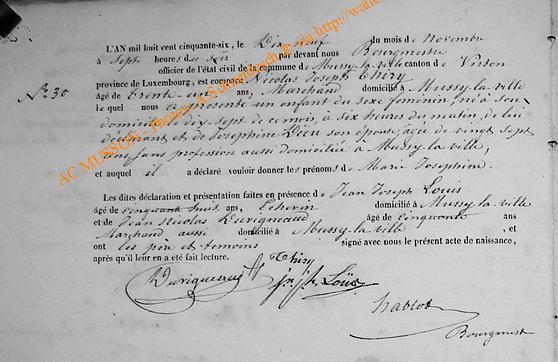 L'AN mil huit cent cinquante-six, le Dix neuf du mois de Novembre
à Sept heures du soir par devant nous Bourgmestre
officier de l'état civil de la commune de Mussy-la-ville canton de Virton
province de Luxembourg, est comparu Nicolas Joseph Thiry
N° 30
âgé de trente un ans, Marchand domicilié à Mussy-la-ville
le quel nous a présenté un enfant du sexe féminin né à son
domicile le dix sept de ce mois, à six heures du matin, de lui
déclarant et de Josephine son épouse, agée de vingt sept
ans, sans profession aussi domiciliée à Mussy-la-ville,
et auquel il a déclaré vouloir donner les prénoms de Marie Josephine.
Les dites déclaration et présentation faites en présence de Jean Joseph Louis
âgé de cinquante huit ans, Echevin domicilié à Mussy-la-ville
et de Jean Nicolas Duvigneaud âgé de cinquante ans
Marchand aussi domicilié à Mussy-la-ville, et
ont les père et témoins signé avec nous le présent acte de naissance,
après qu'il leur en a été fait lecture.
Thiry
Louis
Bourgmestre
AC MUSSON - Photo